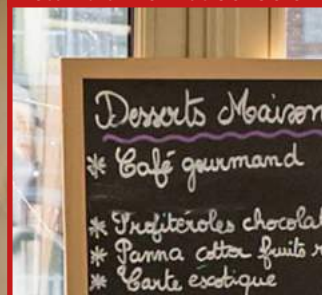 Desserts Maison
* Café gourmand
* Profiteroles chocolat
* Panna cotta fruits r
* Carte exotique